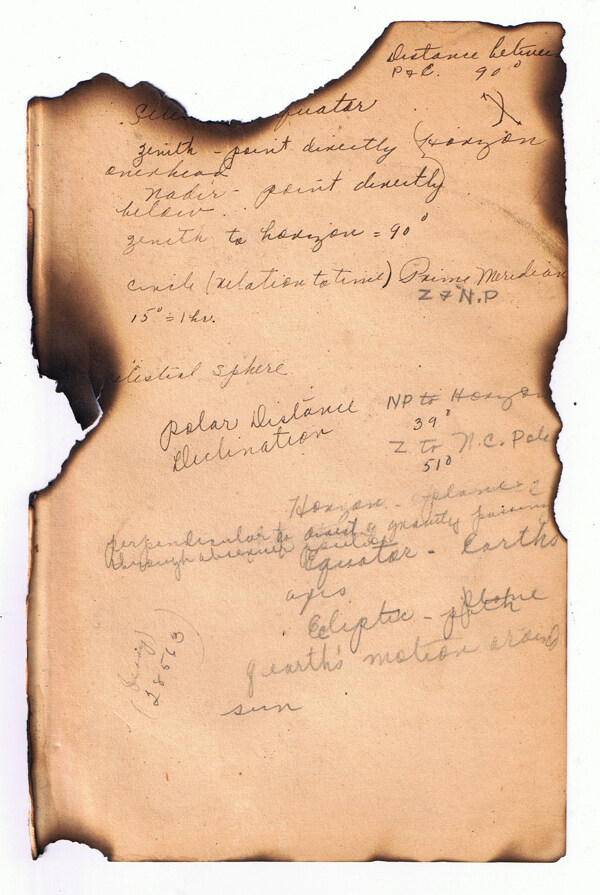 Distance between
P & E. 90°
Equator
zenith - point directly (Horizon
overhead
Nadir - point directly
below.
zenith to horizon = 90°
circle (relation to time) Prime Meridian
Z & N.P
15° = 1 hr.
elestial sphere
Polar Distance
NP to Horizon
39°
Declination
Z to N.C. Pole
51°
Horizon - plane
perpendicular to direct gravity passing
through observer position
Equator - Earth's
axis
Ecliptic - path
of earth's motion around
sun
28563